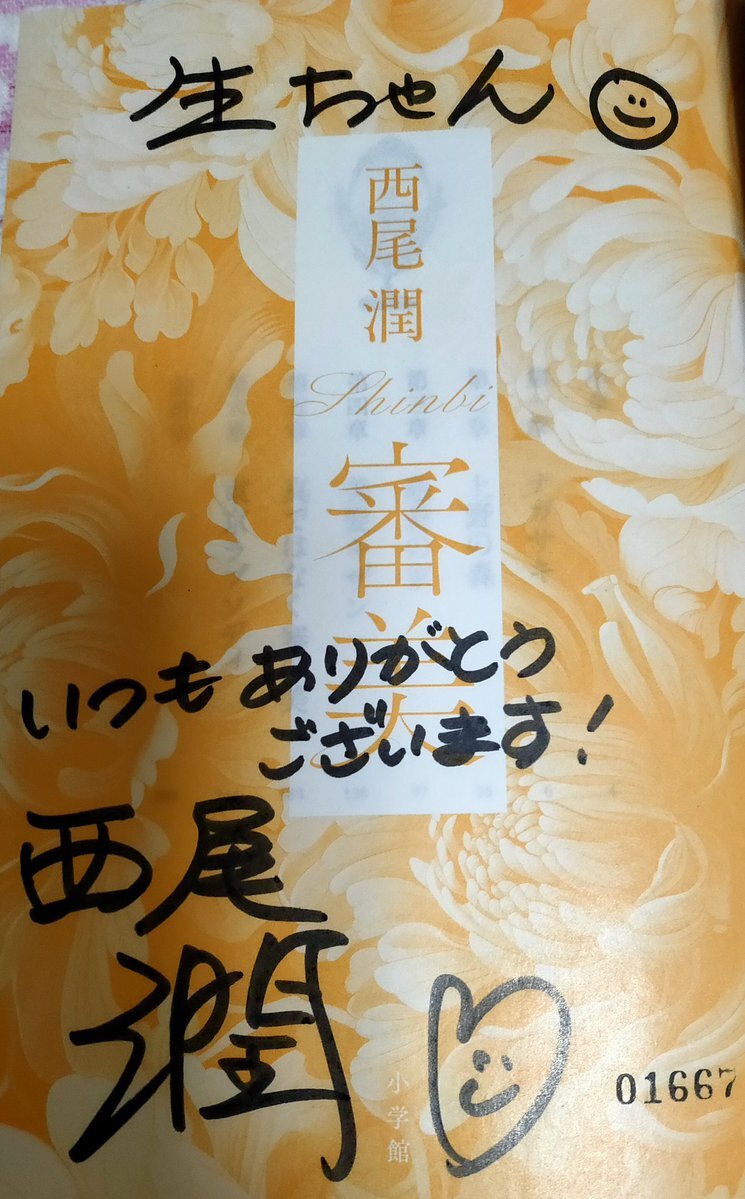 生ちゃん
西尾潤
Shinbi
審美
いつもありがとう
ございます!
西尾
潤
小学館
01667